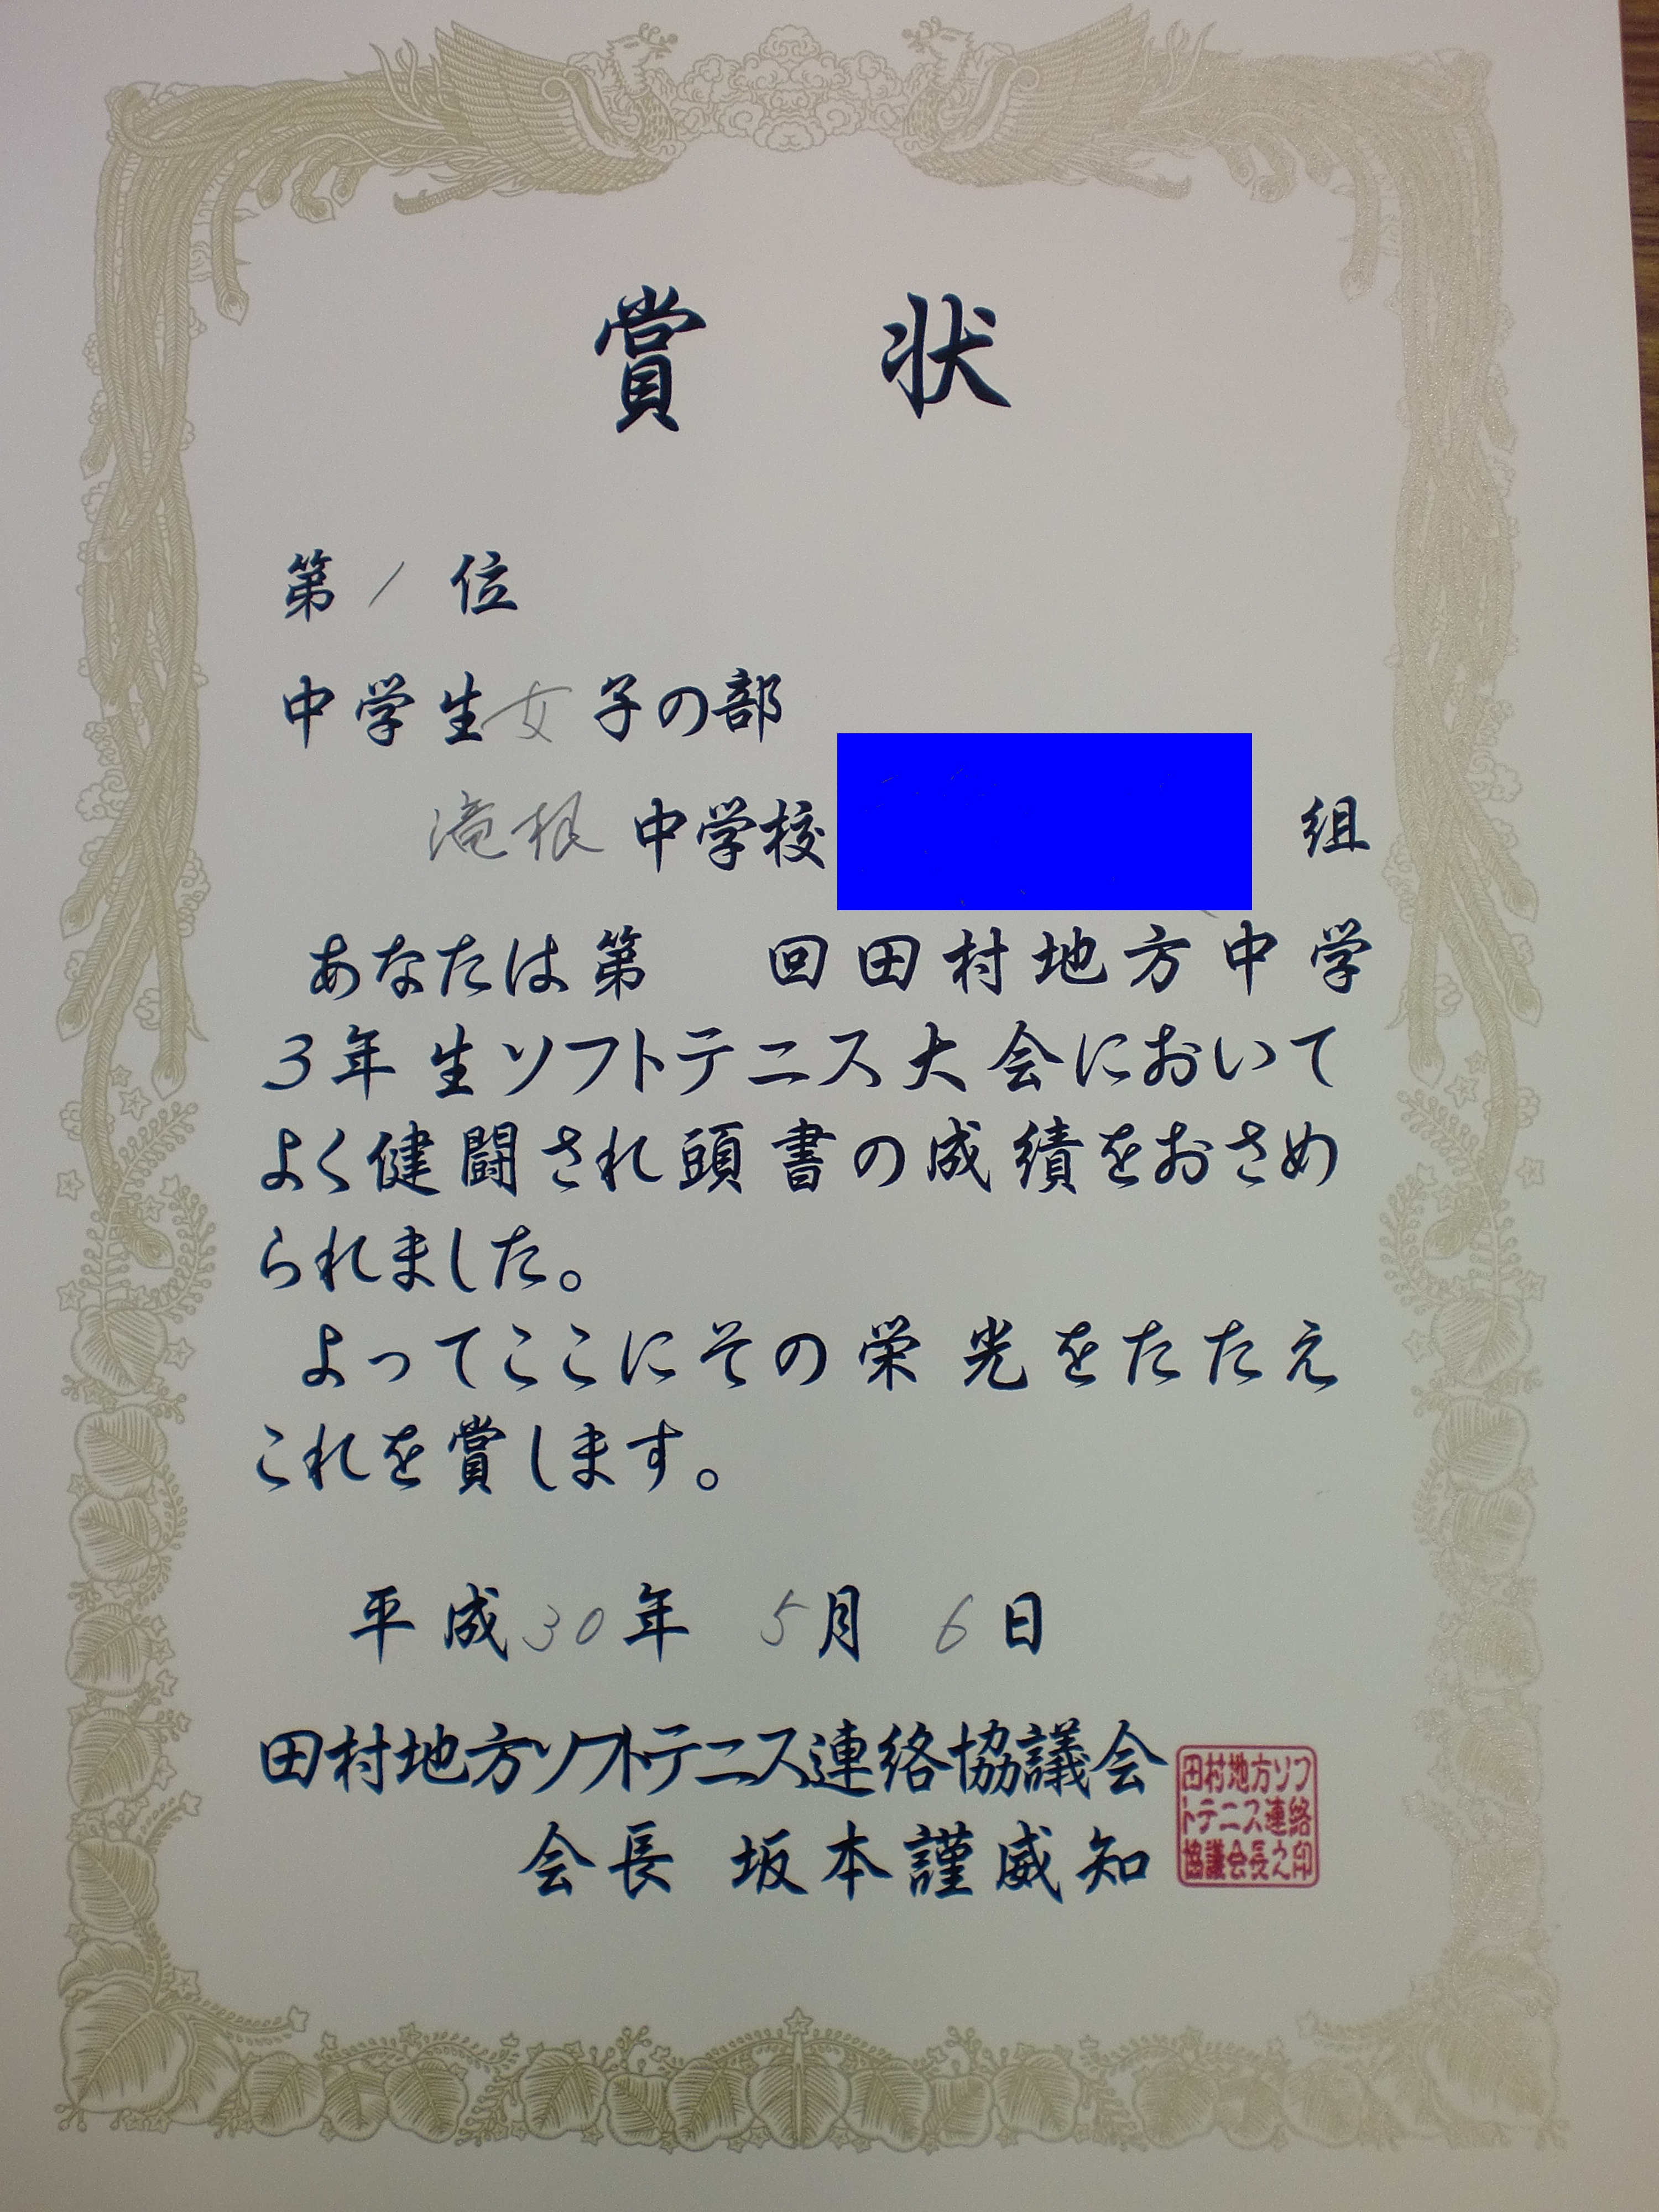 賞状
第1位
中学生女子の部
滝根中学校 組
あなたは第 回田村地方中学
3年生ソフトテニス大会において
よく健闘され頭書の成績をおさめ
られました。
よってここにその栄光をたたえ
これを賞します。
平成30年 5月 6日
田村地方ソフトテニス連絡協議会
会長 坂本謹威知
田村地方ソフ
トテニス連絡
協議会長之印